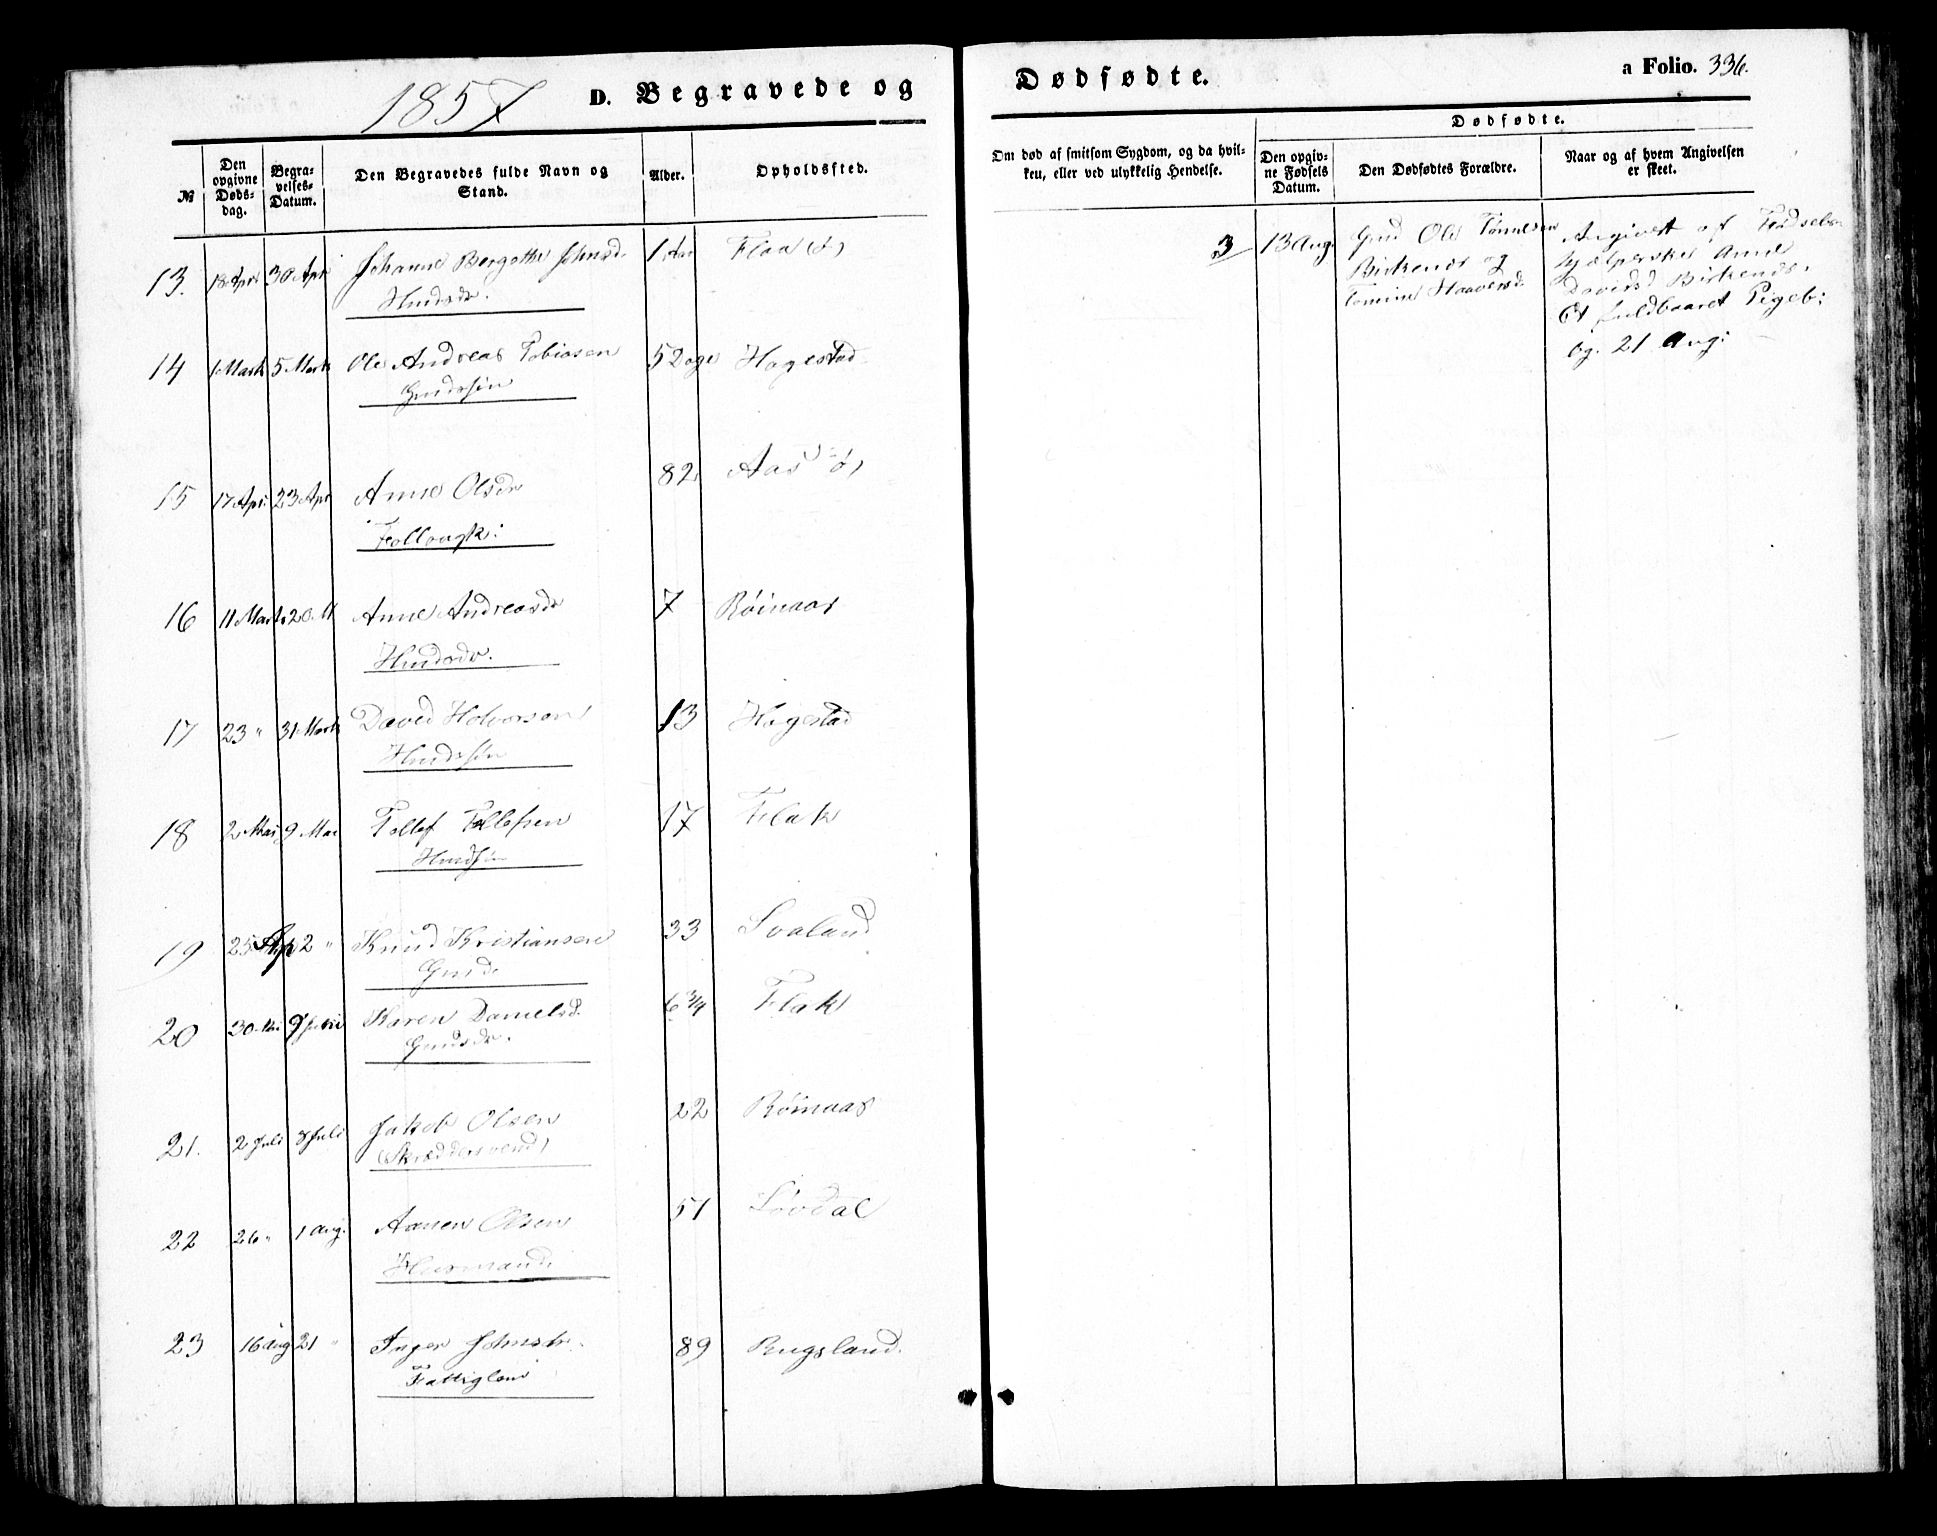 1857 D. Begravede og
№
Den opgivne Dødsdag.
Begravelses-Datum.
Den Begravedes fulde Navn og Stand.
Alder.
Opholdssted.
13. 18 Apr 30 Apr Johanne Bergethe Johnsd. 1 Aar Flaa
Husdr.
14 1 Mart 5 Mart Ole Andreas Tobiasen 5 Hagestad
Gmdssøn
15 17 Apr: 23 Apr Anne Olsdr 82 Aas
16 11 Mart. 20 M Anne Andreasdr 7 Røinaas
Hmdsdr.
17 23 " 31 Mart David Halvorsen 13 Hagestad
Hmdssøn
18 2 Mai 9 Mai Tellef Tellefsen 17 Flak
Hmdssøn
19 25 Apr 2 " Knud Kristiansen 33 Svaland
Gmd.
20 30 Karen Danielsd. 6 3/4 Flak
Gmdsdr.
21. 2 Juli 8 Juli Jakob Olsen 22 Røinaas
(Skræddersvend)
22 26 " 1 Aug. Aanen Olsen 51 Løvdal
Husmand.
23 16 Aug 21 " Inger Johnsdr. 89 Rugsland.
Fattiglem
Dødfødte.
a Folio. 336.
Om død af smitsom Sygdom, og da hvilken, eller ved ulykkelig Hendelse.
Dødfødte.
Den opgivne Fødsels Datum.
Den Dødfødtes Forældre.
Naar og af hvem Angivelsen er skeet.
3 13 Aug. Gmd Ole Tønnesen
Birkenes og
Tomine Haaversd.
Angivet af Fødsels
hjælperske Anne
Davidsd Birkenes.
Et fuldbaaret Pigeb:
bg. 21 Aug: